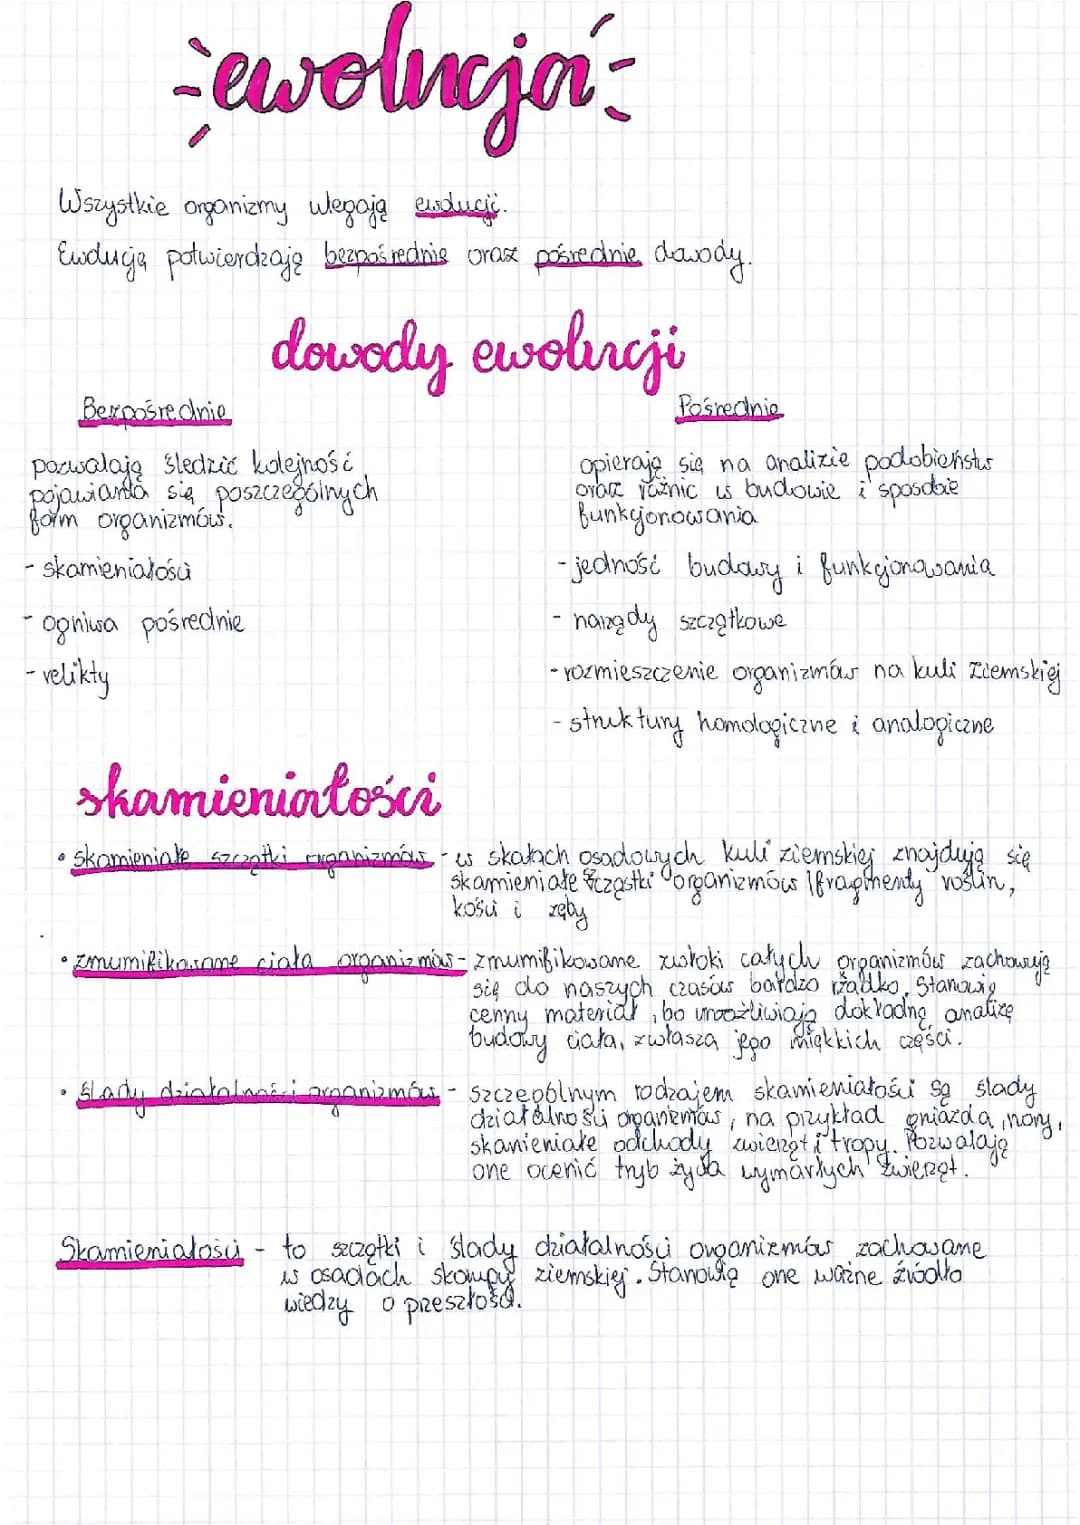 ewolucja
Wszystkie organizmy ulegają ewolucji.
Ewolucję potwierdzają bezpośrednie oraz pośrednie dowody.
dowody ewolucji
Bezpośrednie
pozwalają śledzić kolejność
pojawiania się poszczególnych
form organizmów.
- skamieniałości
- ogniwa pośrednie
- relikty
Pośrednie
opierają się na analizie podobieństw
oraz różnic w budowie i sposobie
funkcjonowania
- jedność budowy i funkcjonowania
- narządy szczątkowe
- rozmieszczenie organizmów na kuli ziemskiej
- struktury homologiczne i analogiczne
skamieniałości
• skamieniałe szczątki organizmów - w skałach osadowych kuli ziemskiej znajdują się
skamieniałe szczątki organizmów (fragmenty roślin,
kości i zęby
• zmumifikowane ciała organizmów - zmumifikowane zwłoki całych organizmów zachowują
się do naszych czasów bardzo rzadko. Stanowią
cenny materiał, bo umożliwiają dokładną analizę
budowy ciała, zwłaszcza jego miękkich części.
• ślady działalności organizmów - szczególnym rodzajem skamieniałości są ślady
działalności organizmów, na przykład gniazda, nory,
skamieniałe odchody zwierząt i tropy. Pozwalają
one ocenić tryb życia wymarłych zwierząt.
Skamieniałości - to szczątki i ślady działalności organizmów zachowane
w osadach skorupy ziemskiej. Stanowią one ważne źródło
wiedzy o przeszłości.